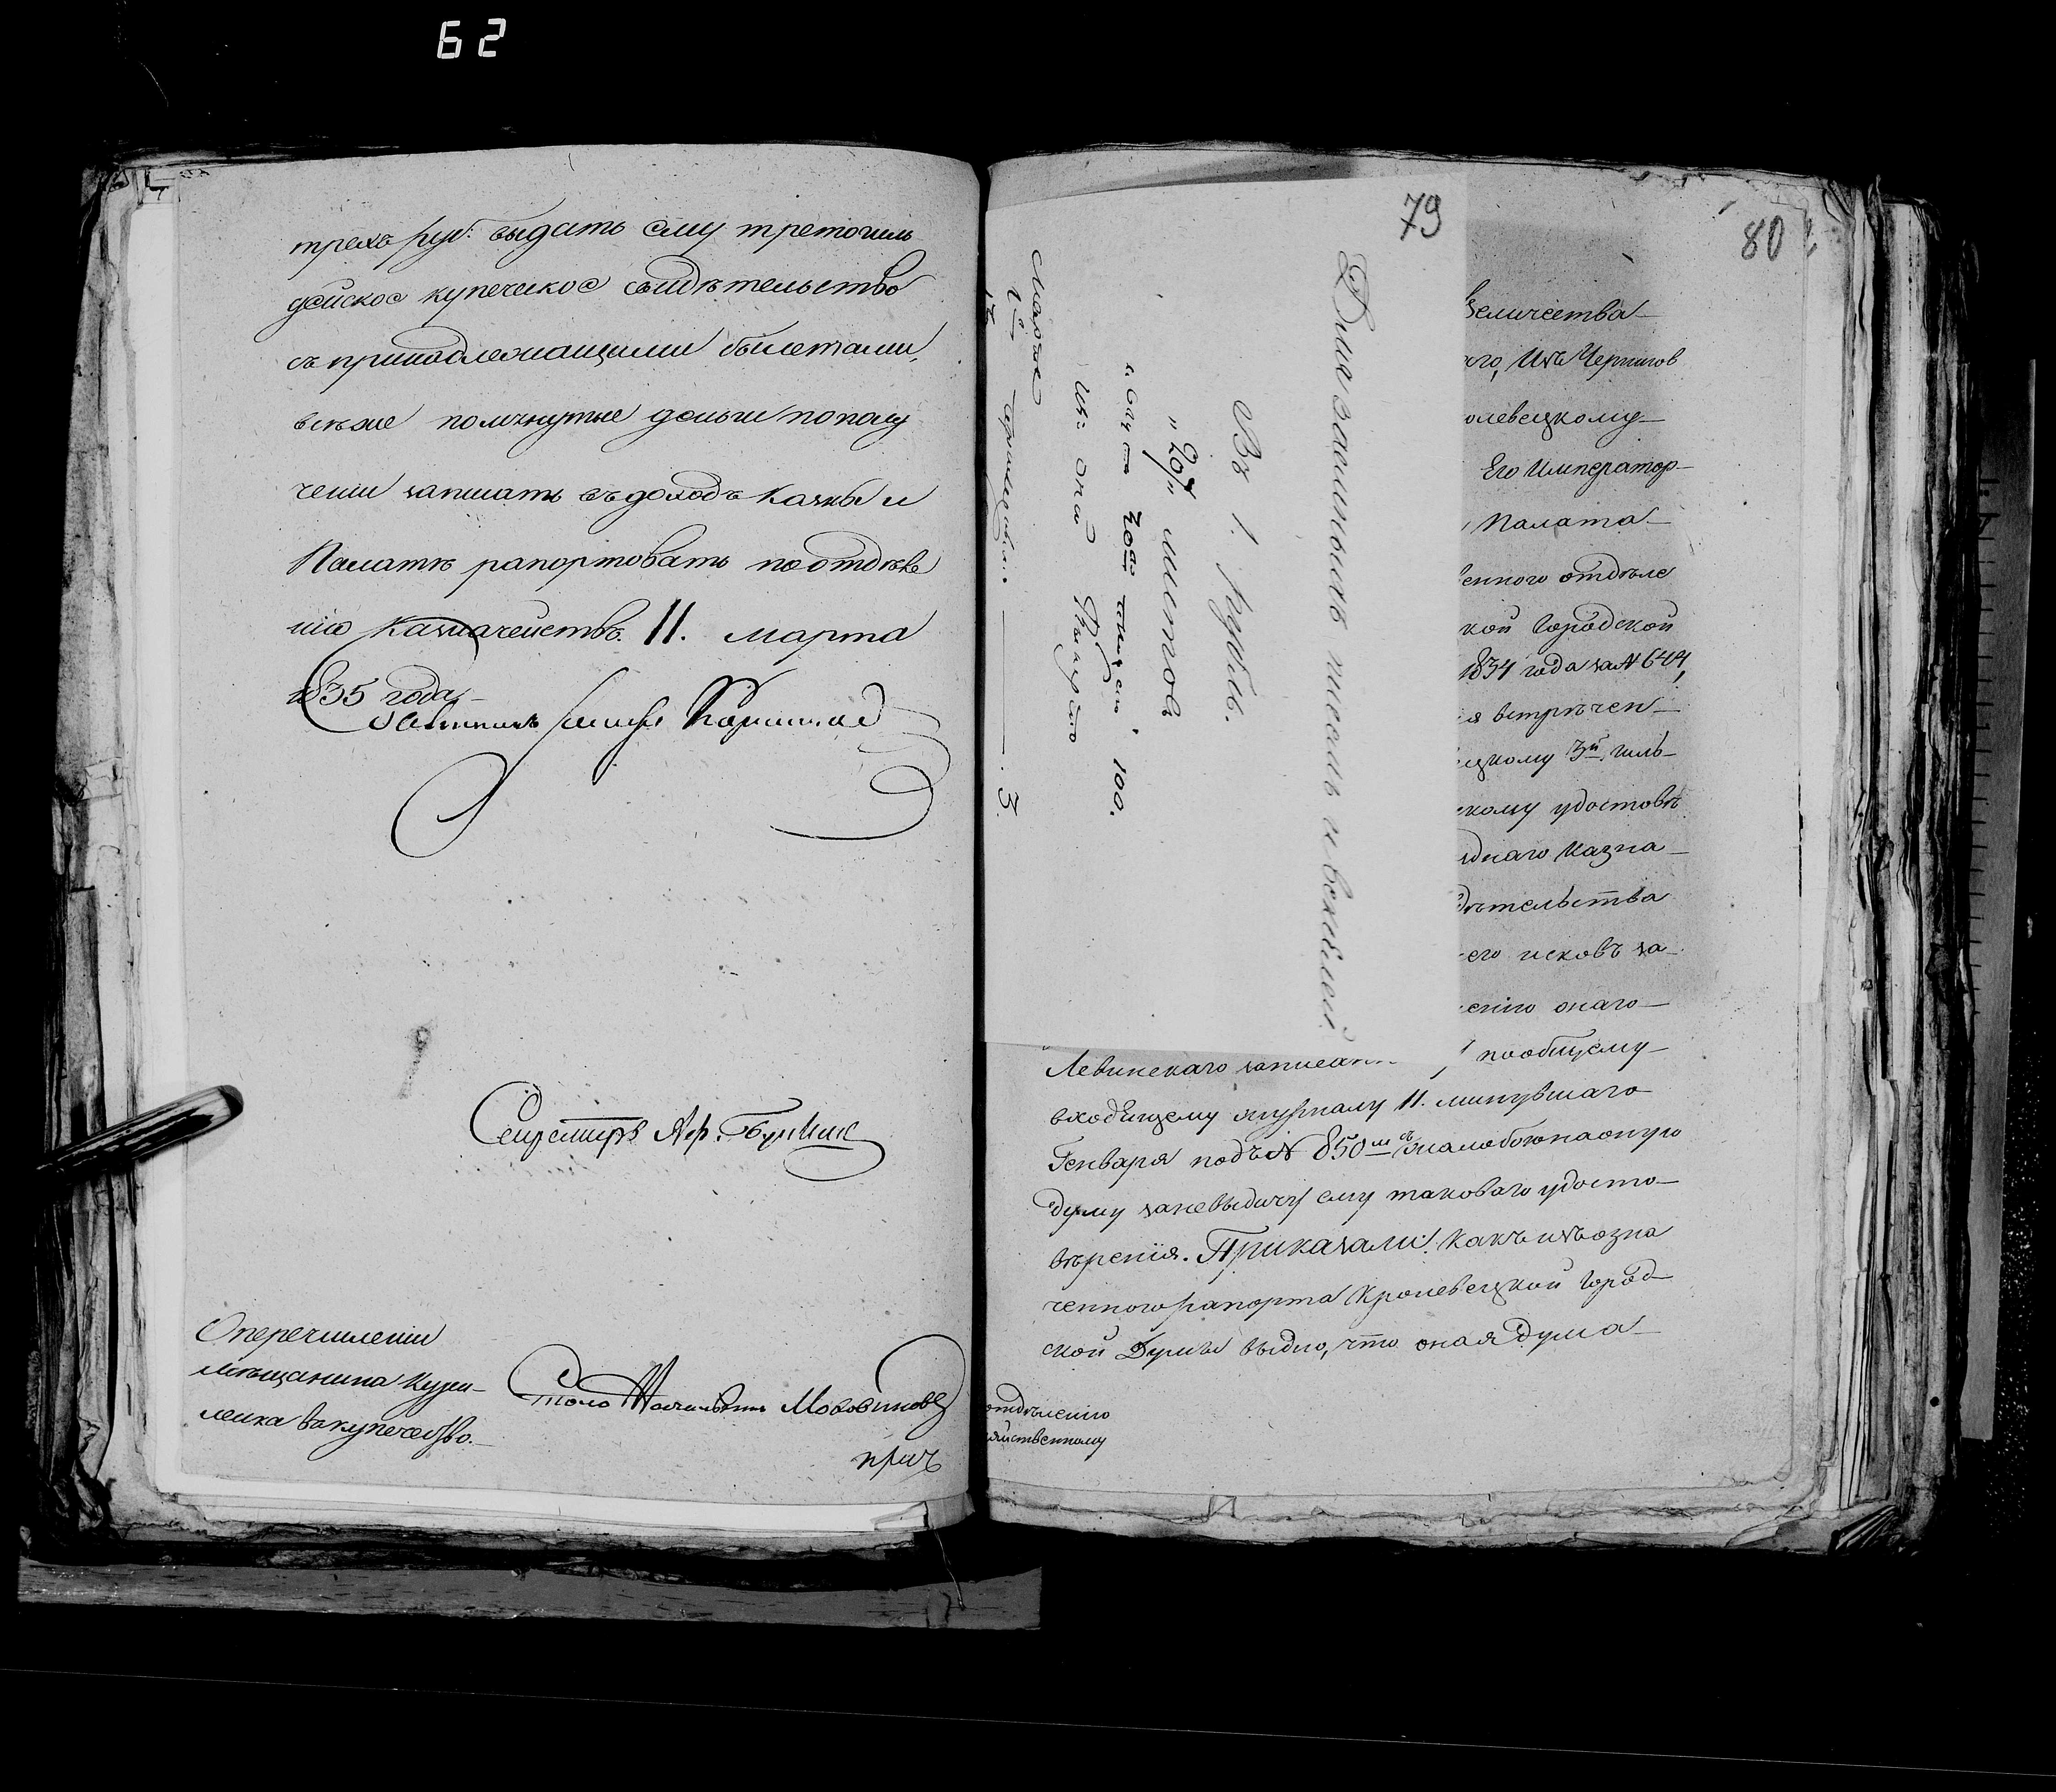 62
трехъ руб. выдать ему третогиль
дейское купеческое свидѣтельство
съ принадлежащими билетами,
всѣже помянутые деньги пополу
чении записать въ доходъ казны и
Палатѣ рапортовать поотдѣле
нію Казначействъ. 11. марта
1835 года
Секретарь Аф.
Оперечислении
мѣщанина Кузь-
менка вкупечество.
Столо Начальникъ
79
Для заемныхъ писемъ и векселей.
Въ 1. рубль.
"20ть" листовъ
80
Величества
аго, Изъ Чернигов
олевецкому
Его Император-
Палата
венного отдѣле
кой Городской
1834 года за № 644,
я встрѣчен-
ецкому 3й гиль-
скому удостовѣ
зднаго Казна-
дѣтельства
его исковъ за-
ению онаго
Левинскаго записан пообщему
входящему журналу 11. минувшаго
Генваря подъ № 850м съ жалобою наоную
думу заневыдачу ему таковаго удосто-
вѣрения. Приказали: Какъ изъ озна
ченного рапорта Кролевецкой Город-
ской Думы видно, что оная Дума
отдѣлению
зяйственному